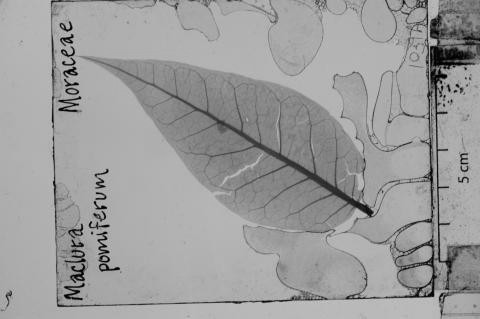 Moraceae
Maclura
pomiferum
5 cm